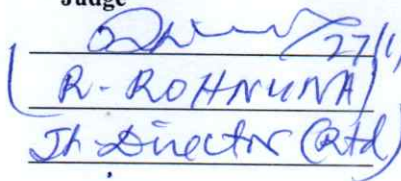 Judge
27/1/
(R. ROHNUNA)
Jt. Director (Rtd)